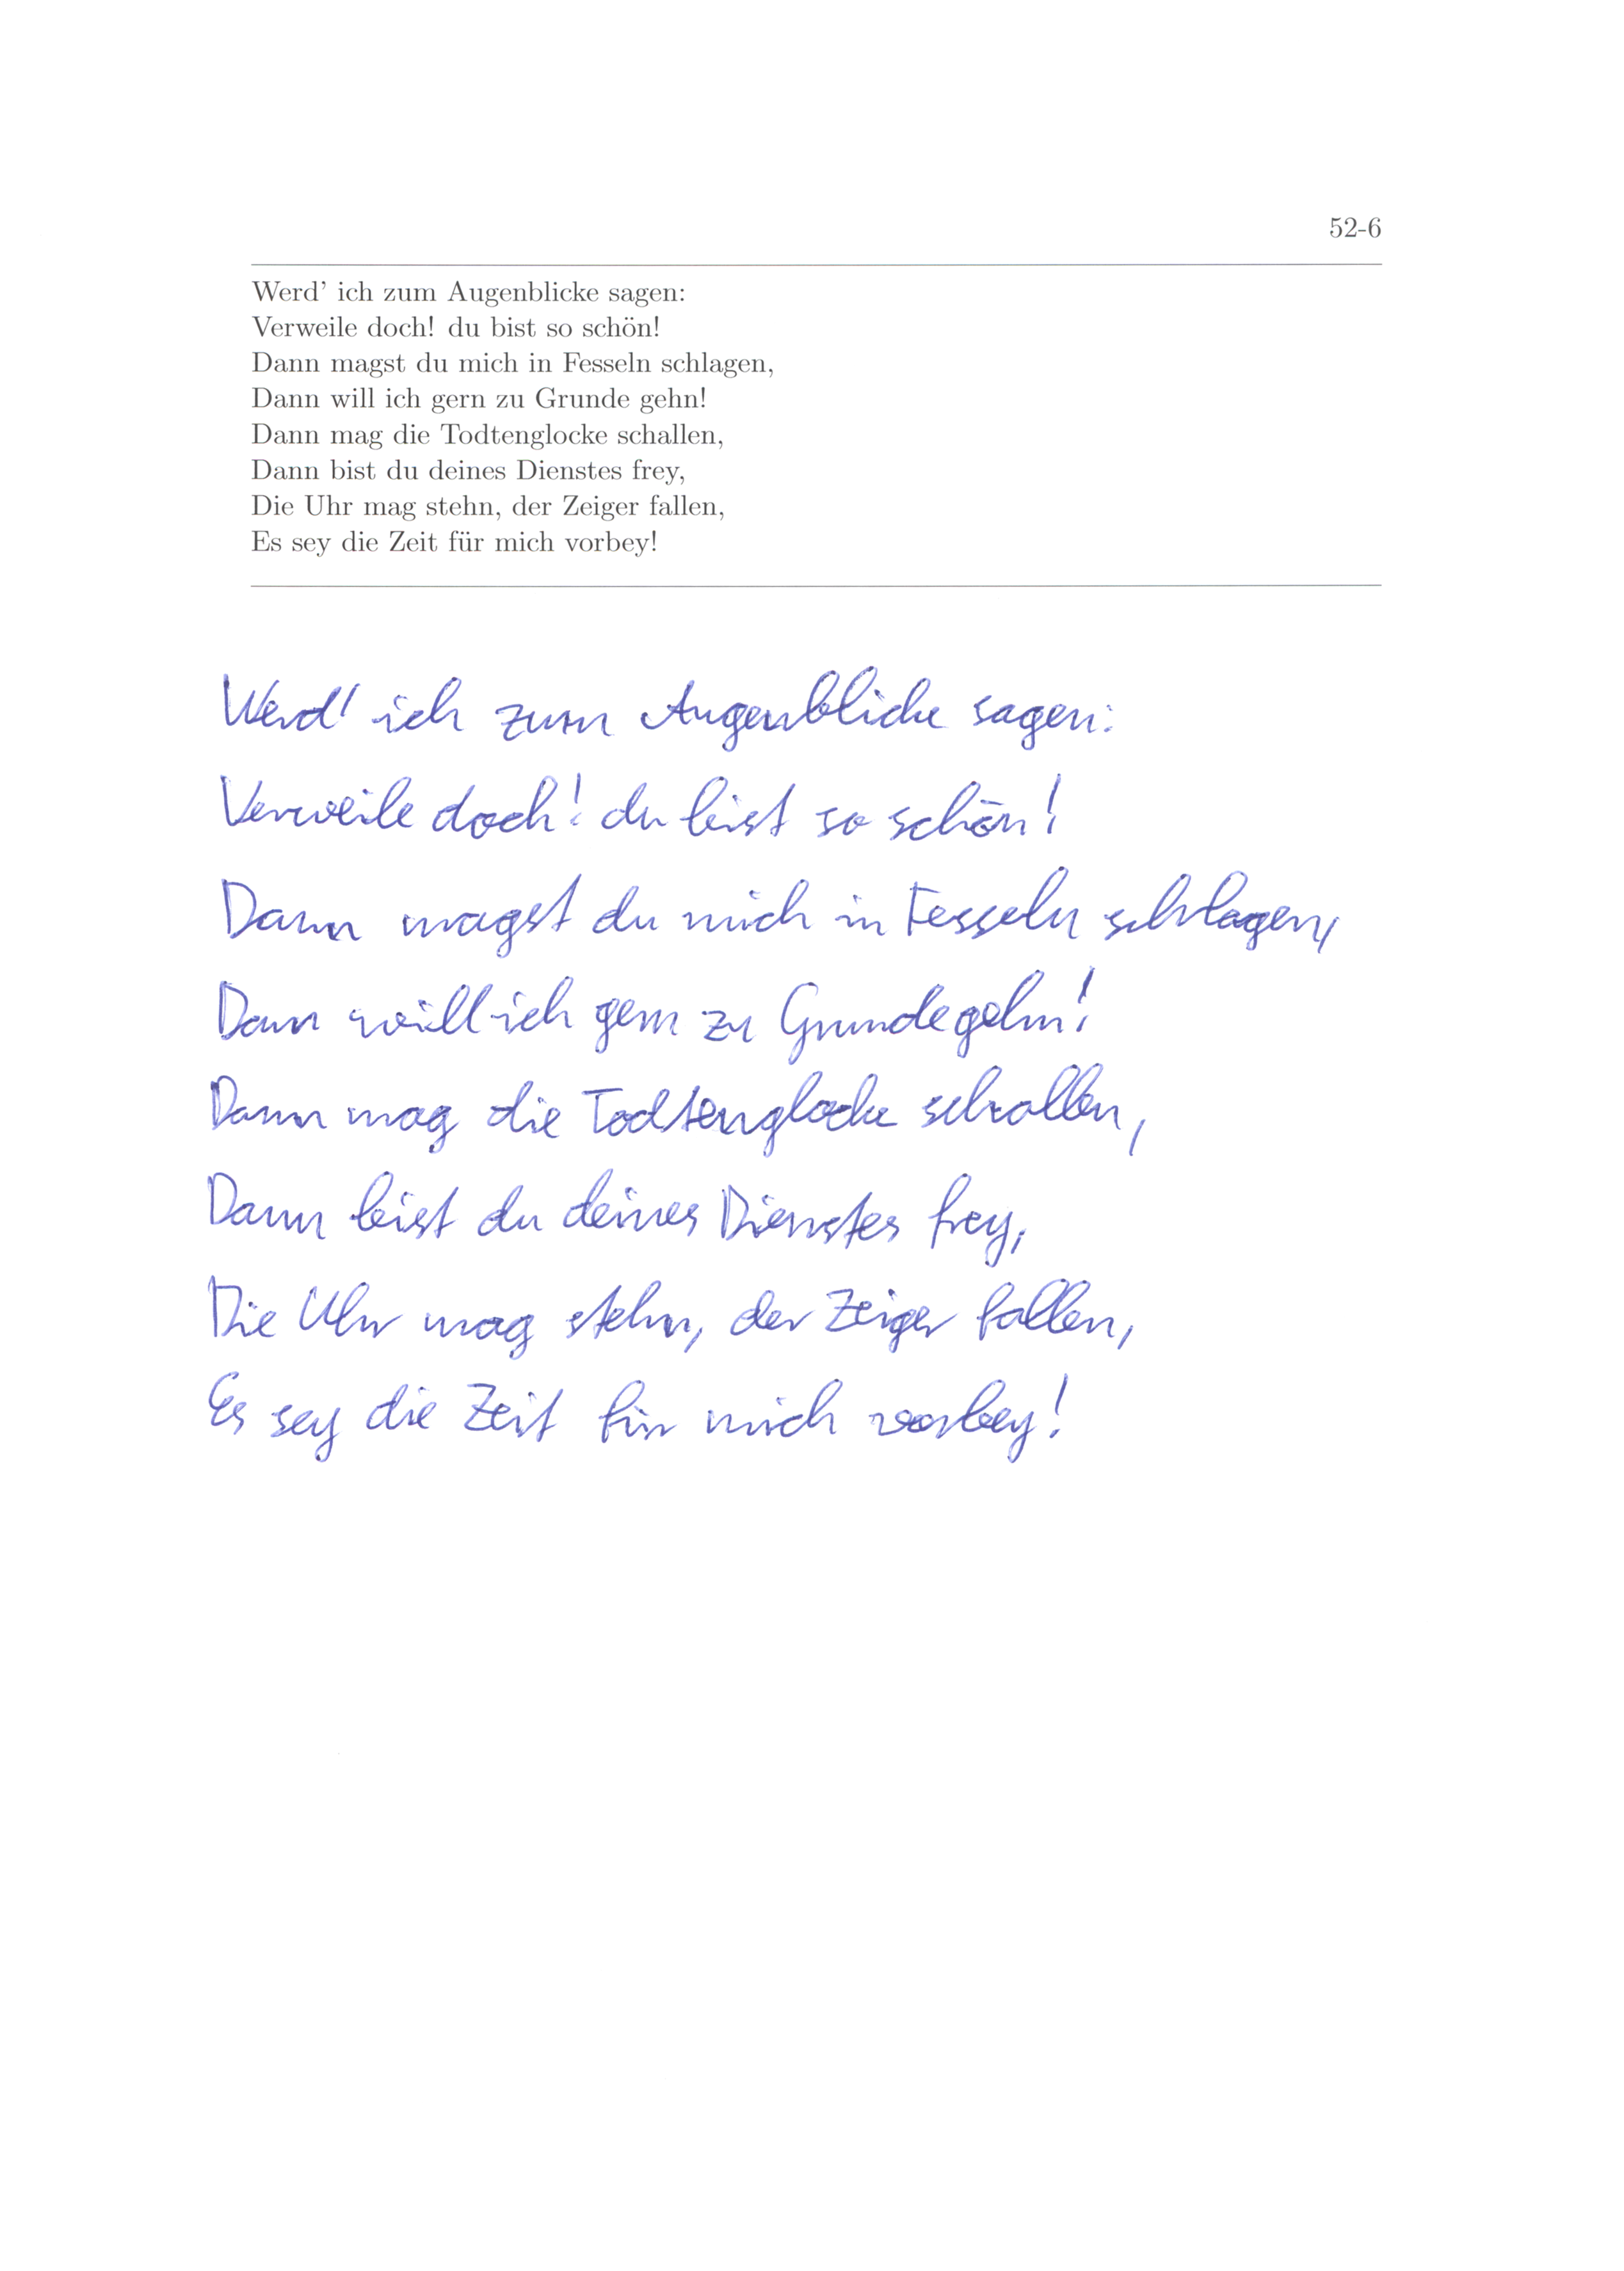 52-6
Werd' ich zum Augenblicke sagen:
Verweile doch! du bist so schön!
Dann magst du mich in Fesseln schlagen,
Dann will ich gern zu Grunde gehn!
Dann mag die Todtenglocke schallen,
Dann bist du deines Dienstes frey,
Die Uhr mag stehn, der Zeiger fallen,
Es sey die Zeit für mich vorbey!
Werd' ich zum Augenblicke sagen:
Verweile doch! du bist so schön!
Dann magst du mich in Fesseln schlagen,
Dann will ich gern zu Grunde gehn!
Dann mag die Todtenglocke schallen,
Dann bist du deines Dienstes frey,
Die Uhr mag stehn, der Zeiger fallen,
Es sey die Zeit für mich vorbey!